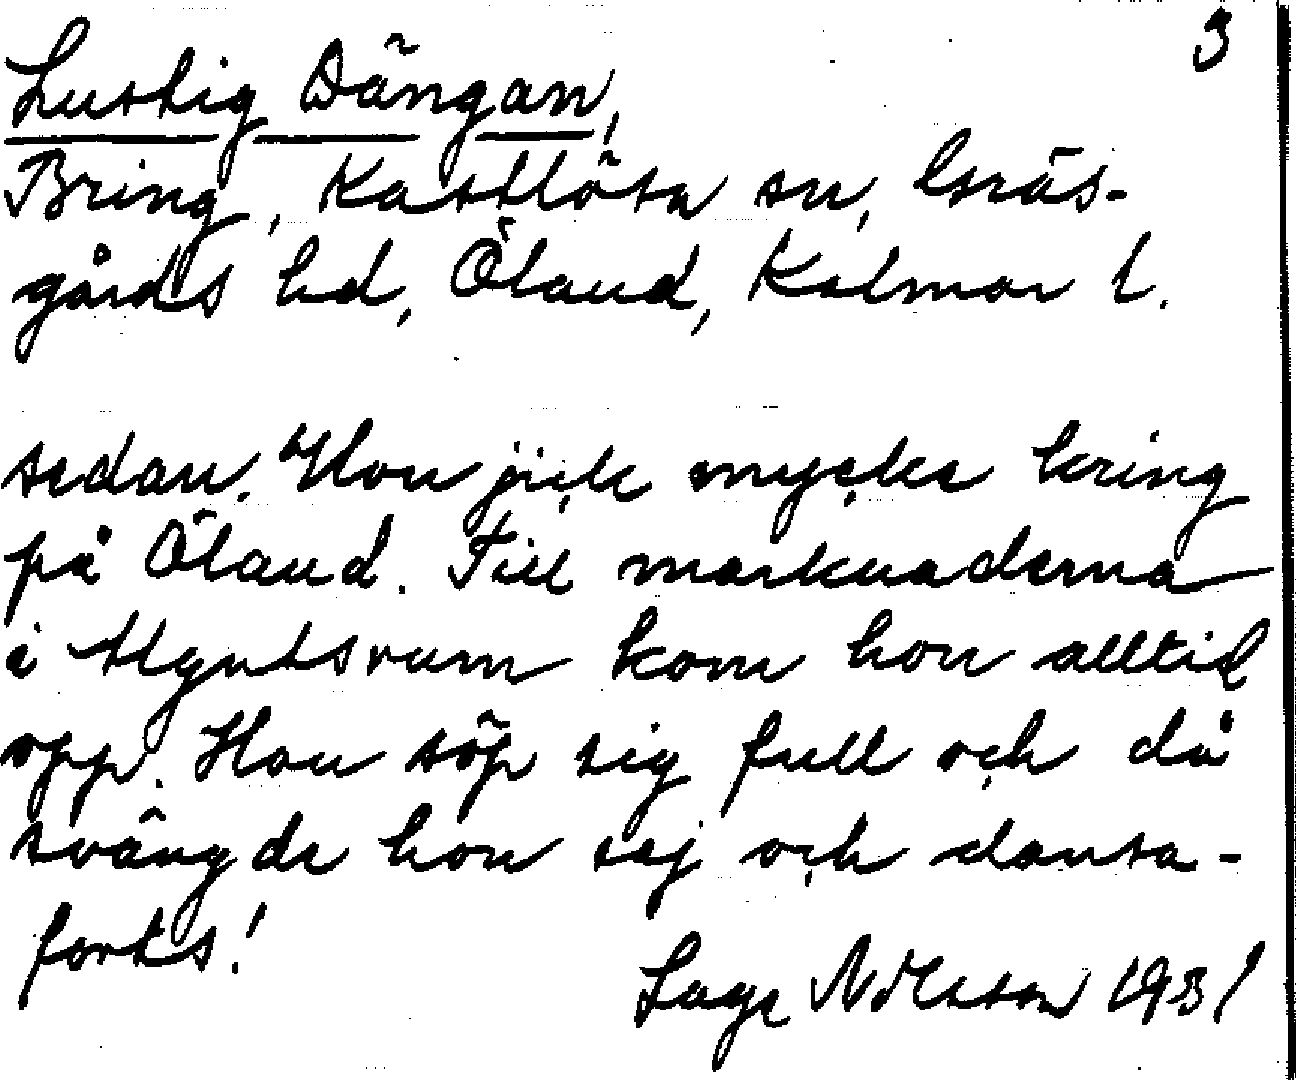 3
Lustig Dängan,
Bring, Kastlösa sn, Gräs-
gårds hd, Öland, Kalmar l.
sedan. "Hon jick mycke kring
på Öland. Till marknaderna
i Algutsrum kom hon alltid
opp. Hon söp sig full och då
svängde hon sej och dansa-
forts!
Lage Nilsson 1931